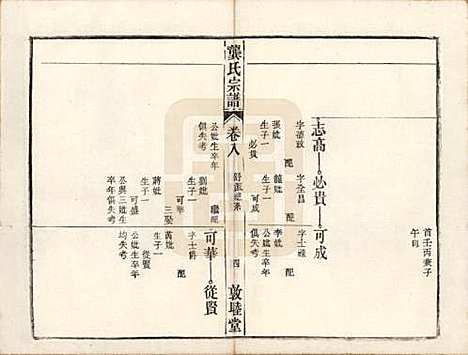 首壬丙兼子
午向
志高 必貴 可成
字德政 配
張妣
生子一
必貴
字全昌 配
鍾妣
生子一
可成
字士進 配
李妣
公妣生卒年
俱失考
龔氏宗譜
卷八
四
敦睦堂
公妣生卒年
俱失考
繼配
劉妣
生子一
可華
三娶
蔣妣
生子一
可盛
公與三妣生
卒年俱失考
可華 從賢
字士爵 配
黃妣
生子一
從賢
公妣生卒年
均失考